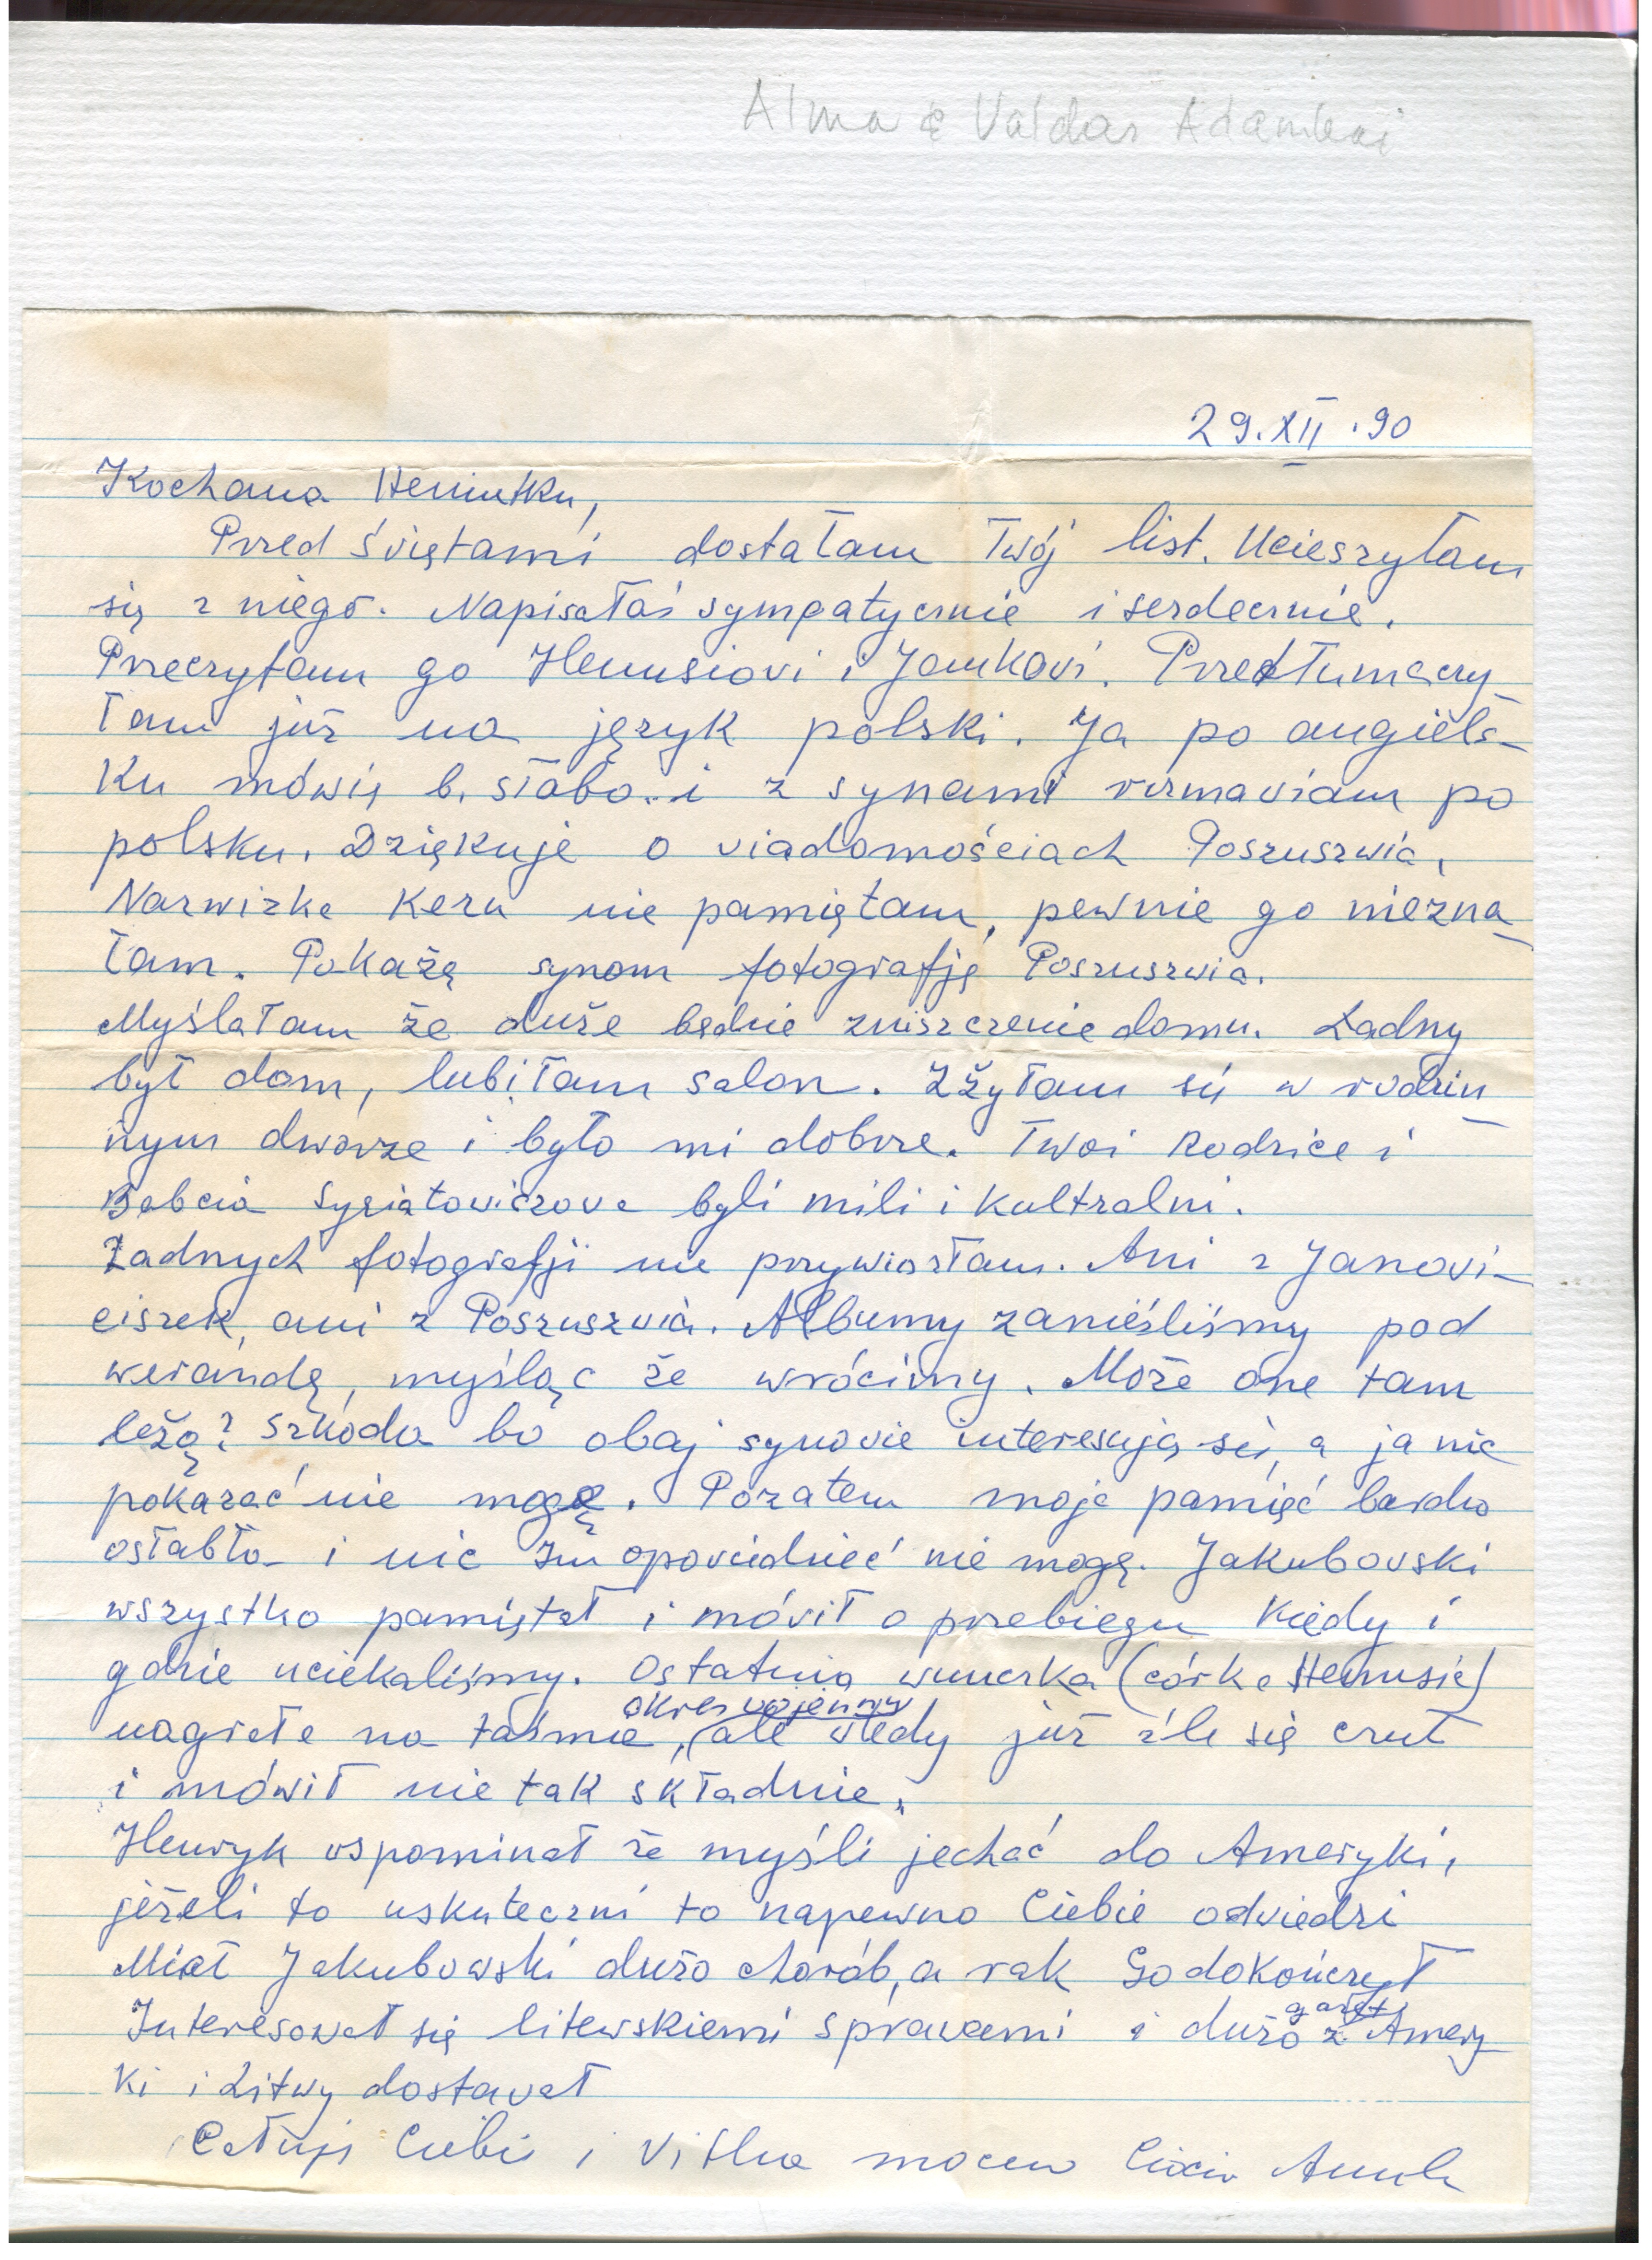 Alma & Valdas Adamkai
29.XII.90
Kochana Heniutku,
Przed świętami dostałam Twój list. Ucieszyłam
się z niego. Napisałaś sympatycznie i serdecznie.
Przeczytałam go Heniusiovi i Jankovi. Przetłumaczy
łam już na język polski. Ja po angiels-
ku mówię b. słabo. i z synami rozmaviam po
polsku. Dziękuje o viadomościach Poszuszwia.
Narwizke nie pamiętam, pewnie go niezna
łam. Pokażę synom fotografję Poszuszwia.
Myślałam że duże będzie zniszczenie domu. Ładny
był dom, lubiłam salon. Zżyłam się w rodzin
nym dworze i było mi dobrze. Twoi Rodzice i
Babcia byli mili i kultralni.
Żadnych fotografji nie przywiozłam. Ani z Janovi-
ciszek, ani z Poszuszvia. Albumy zanieśliśmy pod
werandę, myśląc że wrócimy. Może one tam
leżą? Szkoda bo obaj synovie interesują się, a ja nic
pokazać nie mogę. Pozatem moja pamięć bardzo
osłabła i nic Im opoviedzieć nie mogę. Jakubovski
wszystko pamiętał i móvił o przebiegu kiedy i
gdzie uciekaliśmy. Ostatnio wnuczka (córka Heniusia)
okres vojenny
nagrała na taśmie, (ale vtedy już źle się czuł
i mówił nie tak składnie.
Henryk vspominał że myśli jechać do Ameryki,
jeżeli to uskuteczni to napewno Ciebie odviedzi
Miał Jakubowski dużo chorób, a rak Go dokończył
Interesował się litewskiemi spravami i dużo gazet z Amery
ki i Litwy dostavał
Całuję Ciebie i Vitka mocno Ciocia